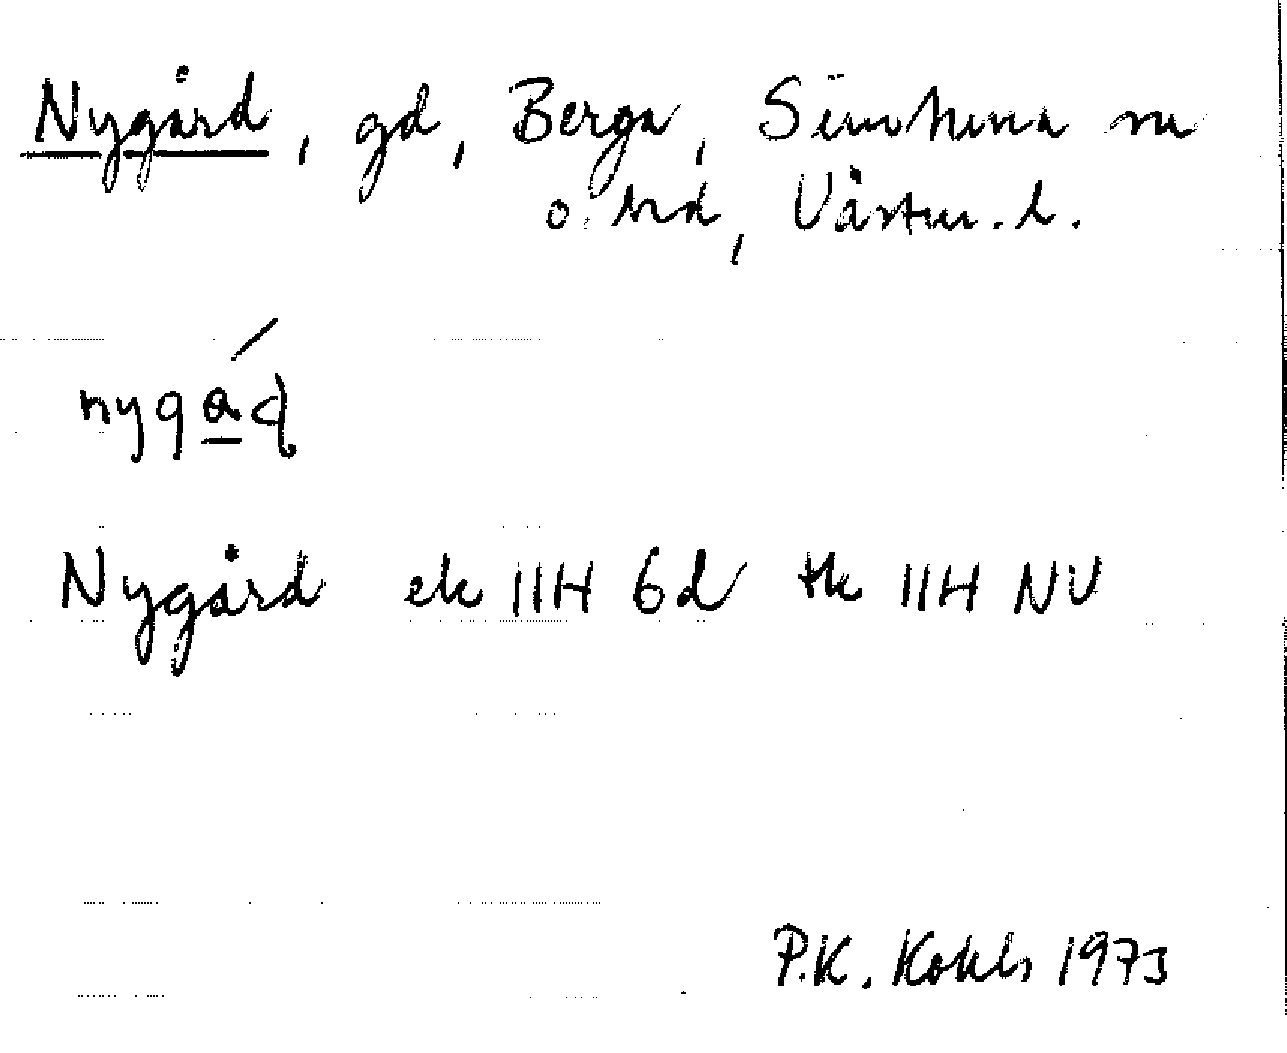 Nygård, gd, Berga, Simtuna sn
o. hd, Västm. l.
nygård
Nygård ek 11H 6d tk 11H NV
P.K. 1973